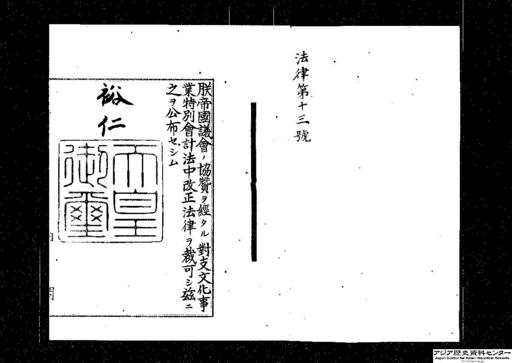 法律第十三號
朕帝國議會ノ協贊ヲ經タル對支文化事
業特別會計法中改正法律ヲ裁可シ玆ニ
之ヲ公布セシム
裕仁
天皇
御璽
アジア歴史資料センター
Japan Center for Asian Historical Records